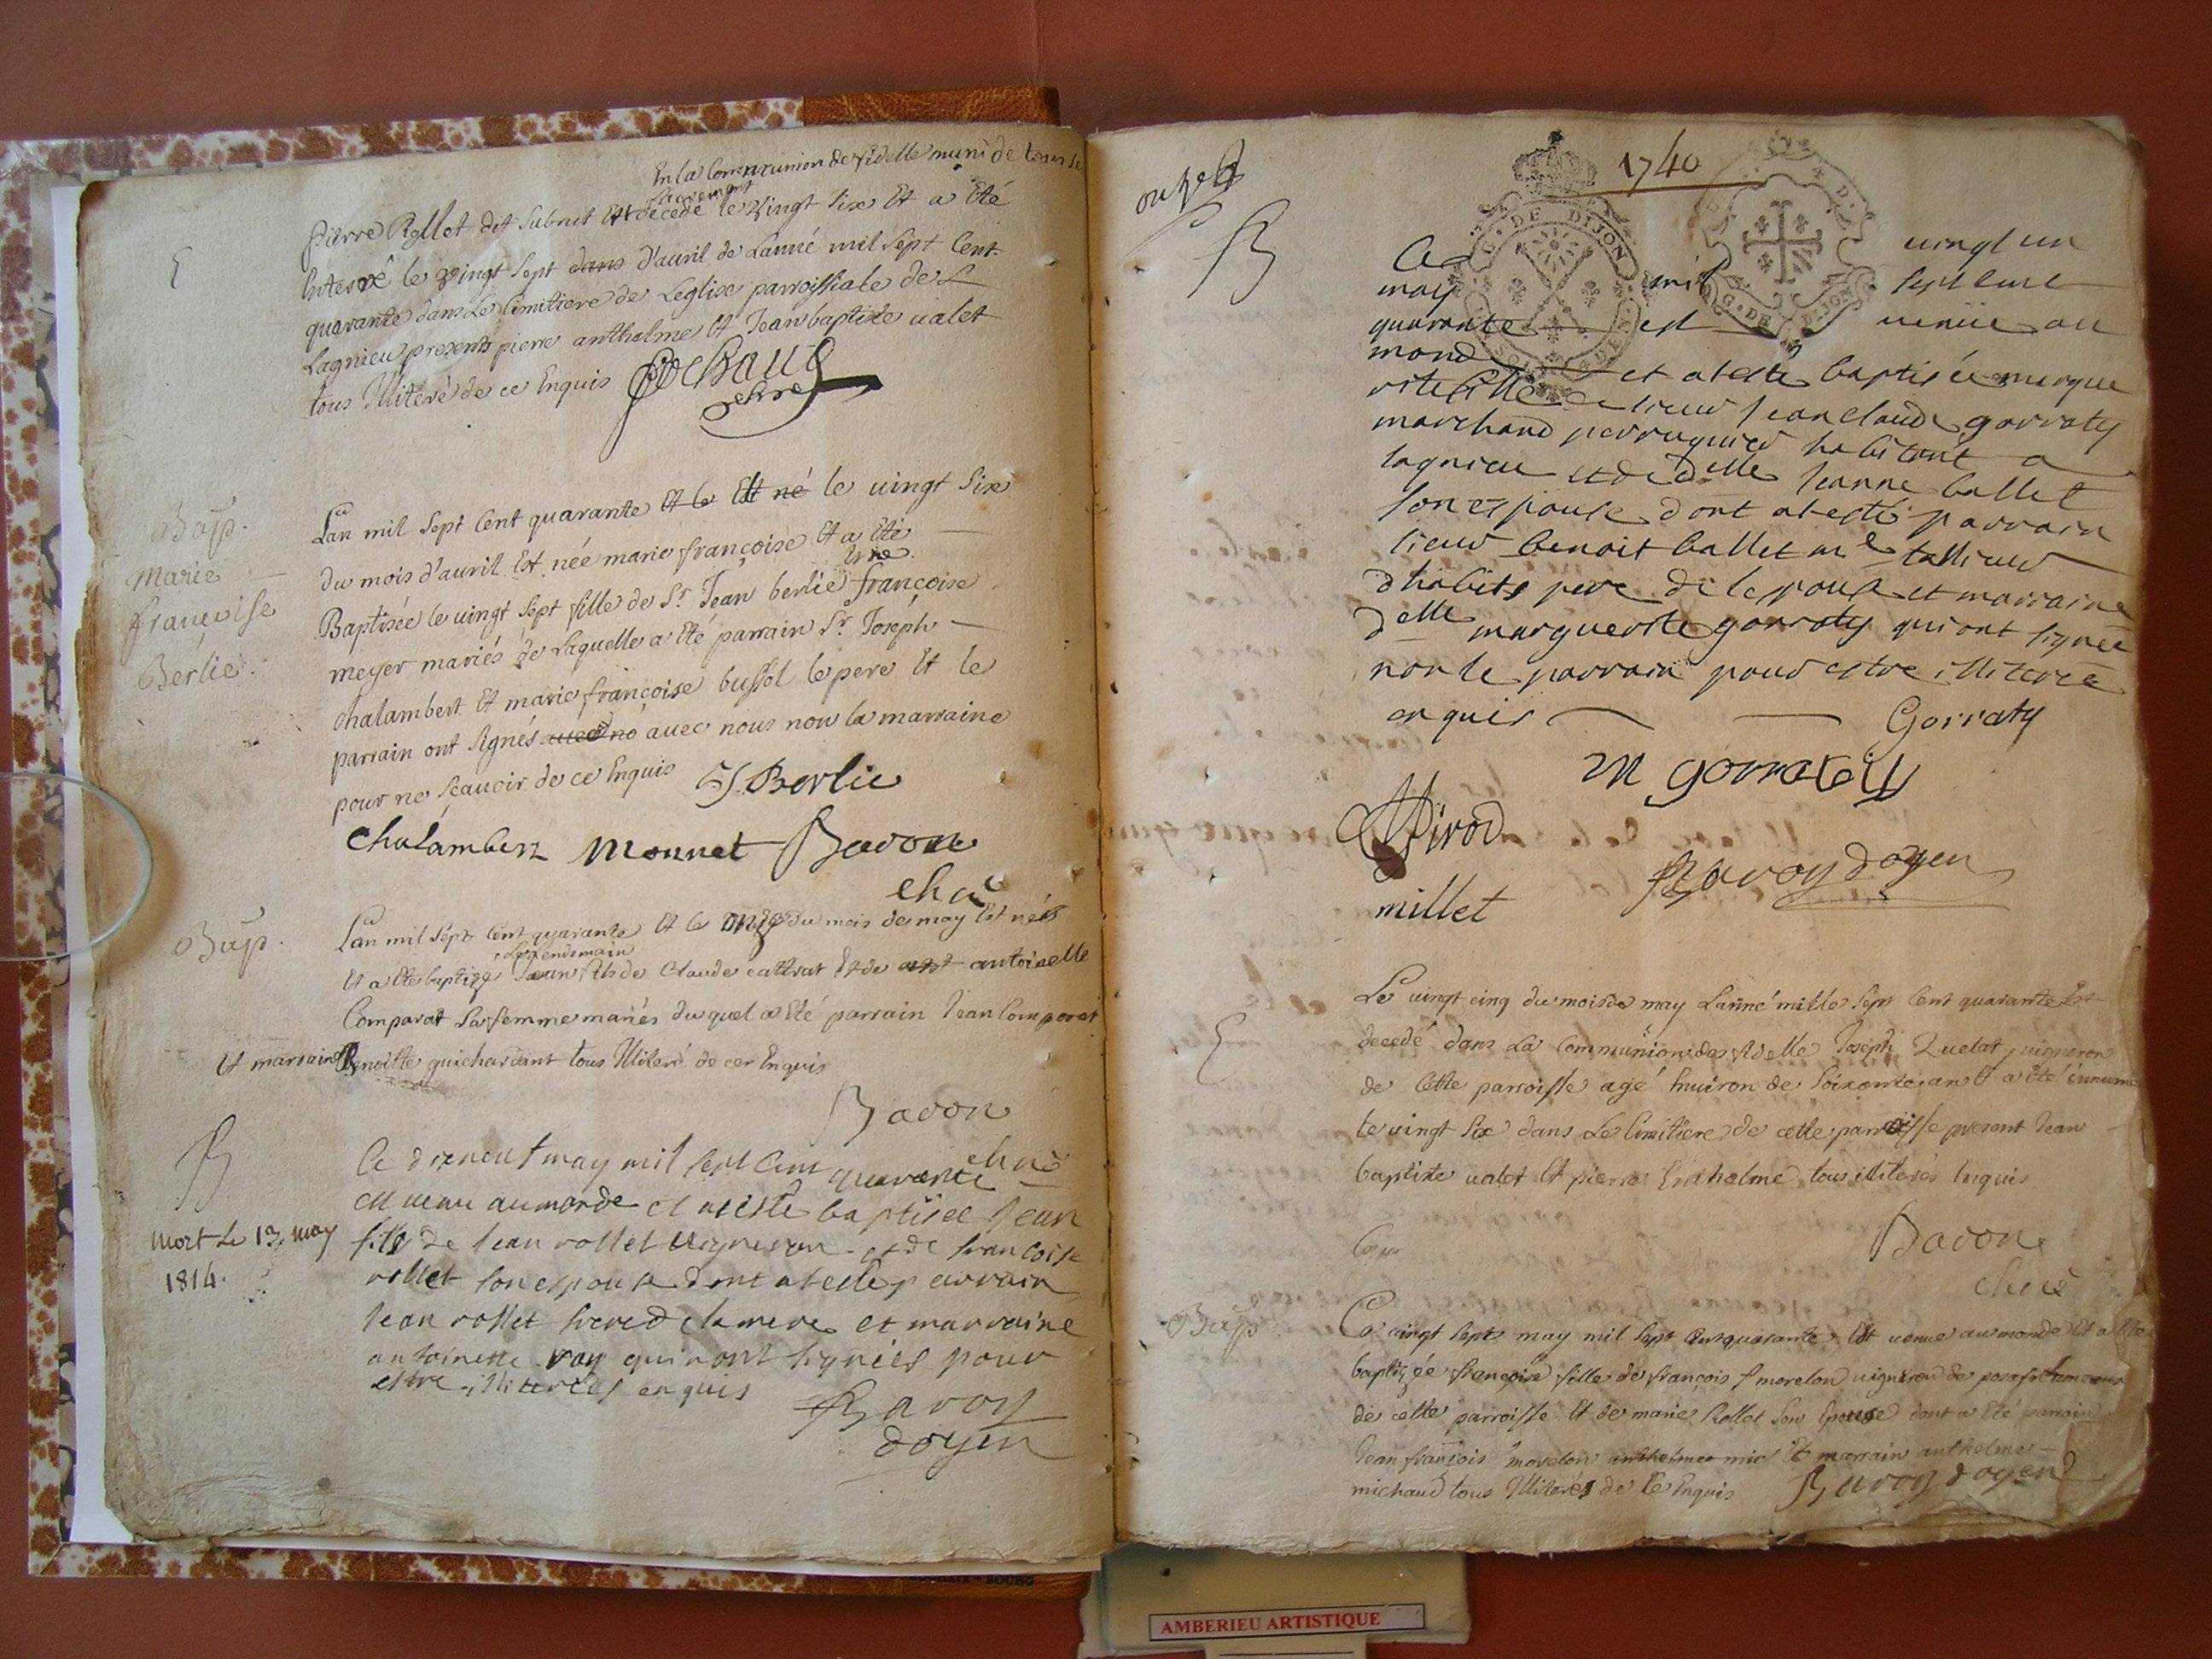 En la Communion de fidelle muni de tous les
sacrement
pierre Rollet dit subnet Et decedé le vingt six Et a Eté
Enterré le vingt sept dans d'auril de Lanné mil sept Cent
quarante dans Le Cimitiere de Leglise parroissiale de
Lagnieu presents pierre anthelme Et Jean baptiste valet
tous Illiteré de ce Enquis
E
Bap.
Marie
françoise
Berlie.
Lan mil sept Cent quarante Et le Est né le vingt six
du mois d'auril Est née marie françoise Et a Eté
Baptisée le vingt sept fille de Sr. Jean berlie françoise
meyer mariés de Laquelle a Eté parrain Sr. Joseph
chalambert Et marie françoise bussol le pere Et le
parrain ont signés avec no avec nous non la marraine
pour ne sçauoir de ce Enquis J. Berlie
Chalambert Monnet Bavon
Bap.
Lan mil sept Cent quarante Et le onze du mois de may Est né
Le Lendemain
Et a Ete baptizé Jean fils de Claude cattrat Et de antoinelle
Comparat sa femme mariés du quel a Eté parrain Jean Comparat
Et marraine Benoitte guichardant tous Illiteré de cer Enquis
Bavon
B
mort Le 13. may
1814.
Ce dixneuf may mil sept Cent quarante
est venu au monde et a esté baptisée Jean
fils de Jean rollet vigneron et de francoise
rollet son espouse dont at esté parrain
Jean rollet frere de la mere et marraine
antoinette ray qui nont signées pour
estre illiterées enquis
Baroy
doyen
1740
B
G. DE DIJON
G. DE DIJON
Ce vingt un
may mil sept cent
quarante est venüe au
monde et at esté baptisée margue
rite fille de sieur Jean Claude gorraty
marchand perruquier habitant a
lagnieu et de delle Jeanne ballet
son espouse dont at esté parrain
sieur benoit ballet me tallieur
dhabits pere de lespouse et marraine
delle marguerite gorraty qui ont signée
non le parrain pour estre illiterée
enquis Gorraty
M gorraty
Girod
millet
Baroy doyen
E
Le vingt cinq du mois de may Lanné mille sept Cent quarante Est
decedé dans La Communion des fidelle Joseph Quetat vigneron
de Cette parroisse agé Enuiron de soixante an Et a Eté innumé
le vingt six dans Le Cimitiere de cette parroisse present Jean
baptiste valet Et pierre Enthelme tous illiterés Enquis
Bavon
Bap.
Ce vingt sept may mil sept Cent quarante Est venue au monde Et a Ete
baptizée françoise fille de françois morelon vigneron de
de cette parroisse Et de marie Rollet son Epouse dont a Eté parrain
Jean françois morelon anthelme mic Et marrain anthelme
michaud tous Illiterés de Ce Enquis Baroy doyen
AMBERIEU ARTISTIQUE